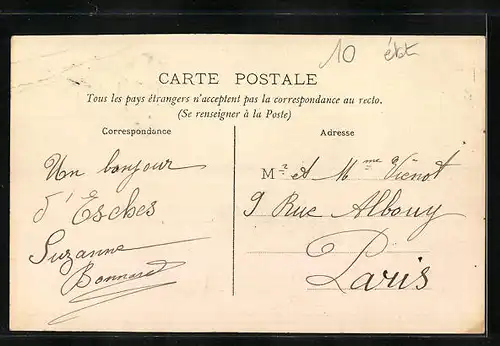 10 ébt
CARTE POSTALE
Tous les pays étrangers n'acceptent pas la correspondance au recto.
(Se renseigner à la Poste)
Correspondance
Un bonjour
d'Esches
Suzanne
Bonnard
Adresse
Mr et Mme Viénot
9 Rue Albouy
Paris